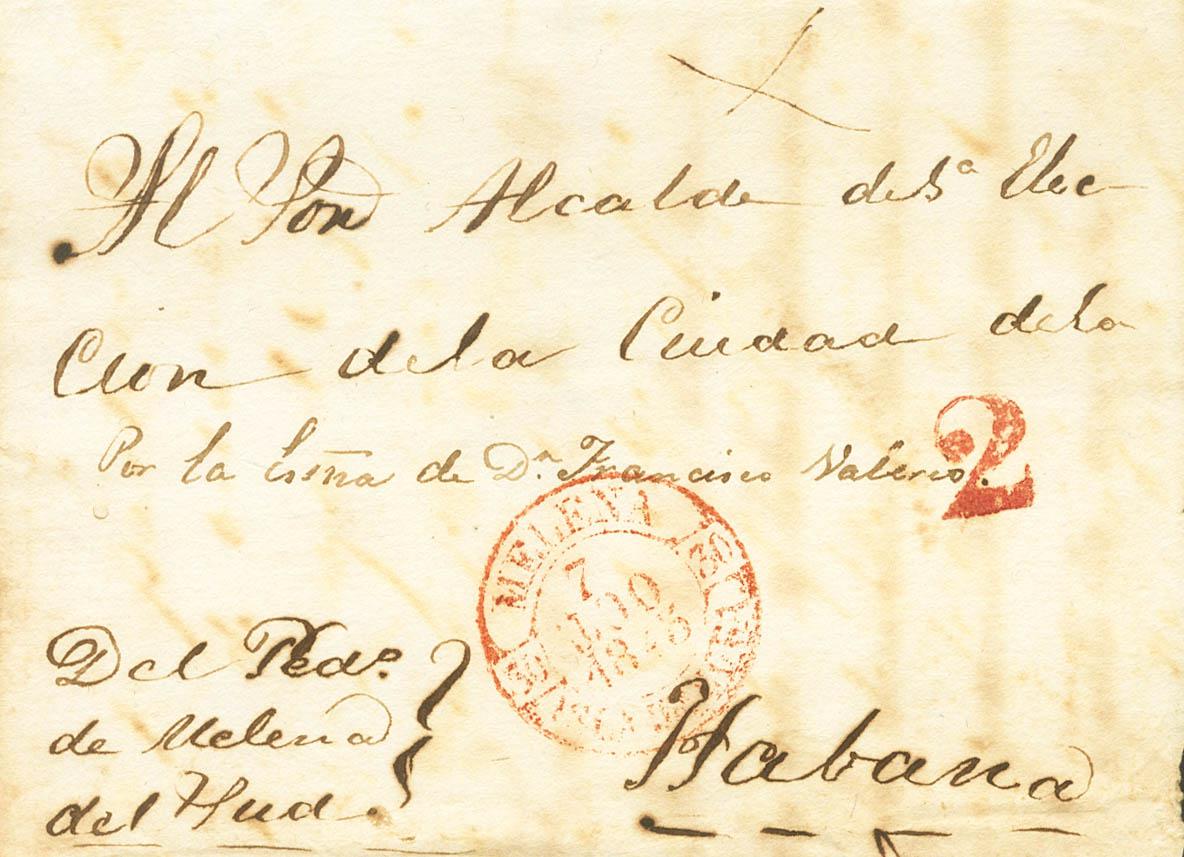 Al Sor Alcalde de 1ª Elec-
cion de la Ciudad de la
Por la Essña de Dn Francisco Valerio.
2
MELENA
7
AGO
Del Pedo
de Melena
del Sud.
Habana